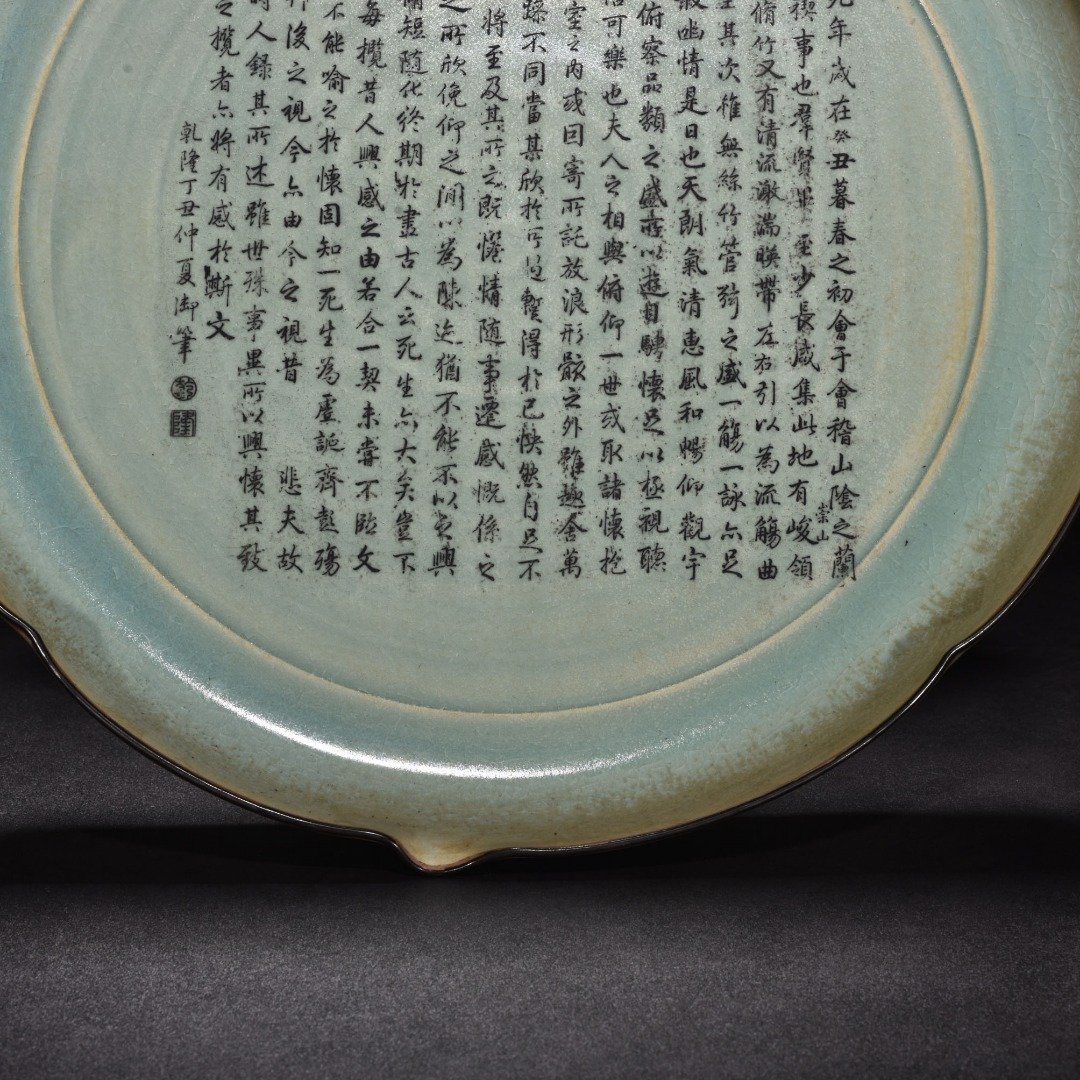 年歲在癸丑暮春之初會于會稽山陰之蘭
崇山
禊事也羣賢畢至少長咸集此地有峻領
脩竹又有清流激湍暎帶左右引以為流觴曲
坐其次雖無絲竹管弦之盛一觴一詠亦足
敘幽情是日也天朗氣清惠風和暢仰觀宇
俯察品類之盛所以遊目騁懷足以極視聽
信可樂也夫人之相與俯仰一世或取諸懷抱
室之內或因寄所託放浪形骸之外雖趣舍萬
躁不同當其欣於所遇暫得於己怏然自足不
將至及其所之既惓情隨事遷感慨係之
之所欣俛仰之閒以為陳迹猶不能不以之興
脩短隨化終期於盡古人云死生亦大矣豈不
每攬昔人興感之由若合一契未嘗不臨文
不能喻之於懷固知一死生為虛誕齊彭殤
後之視今亦由今之視昔 悲夫故
時人錄其所述雖世殊事異所以興懷其致
之攬者亦將有感於斯文
乾隆丁丑仲夏御筆
乾
隆